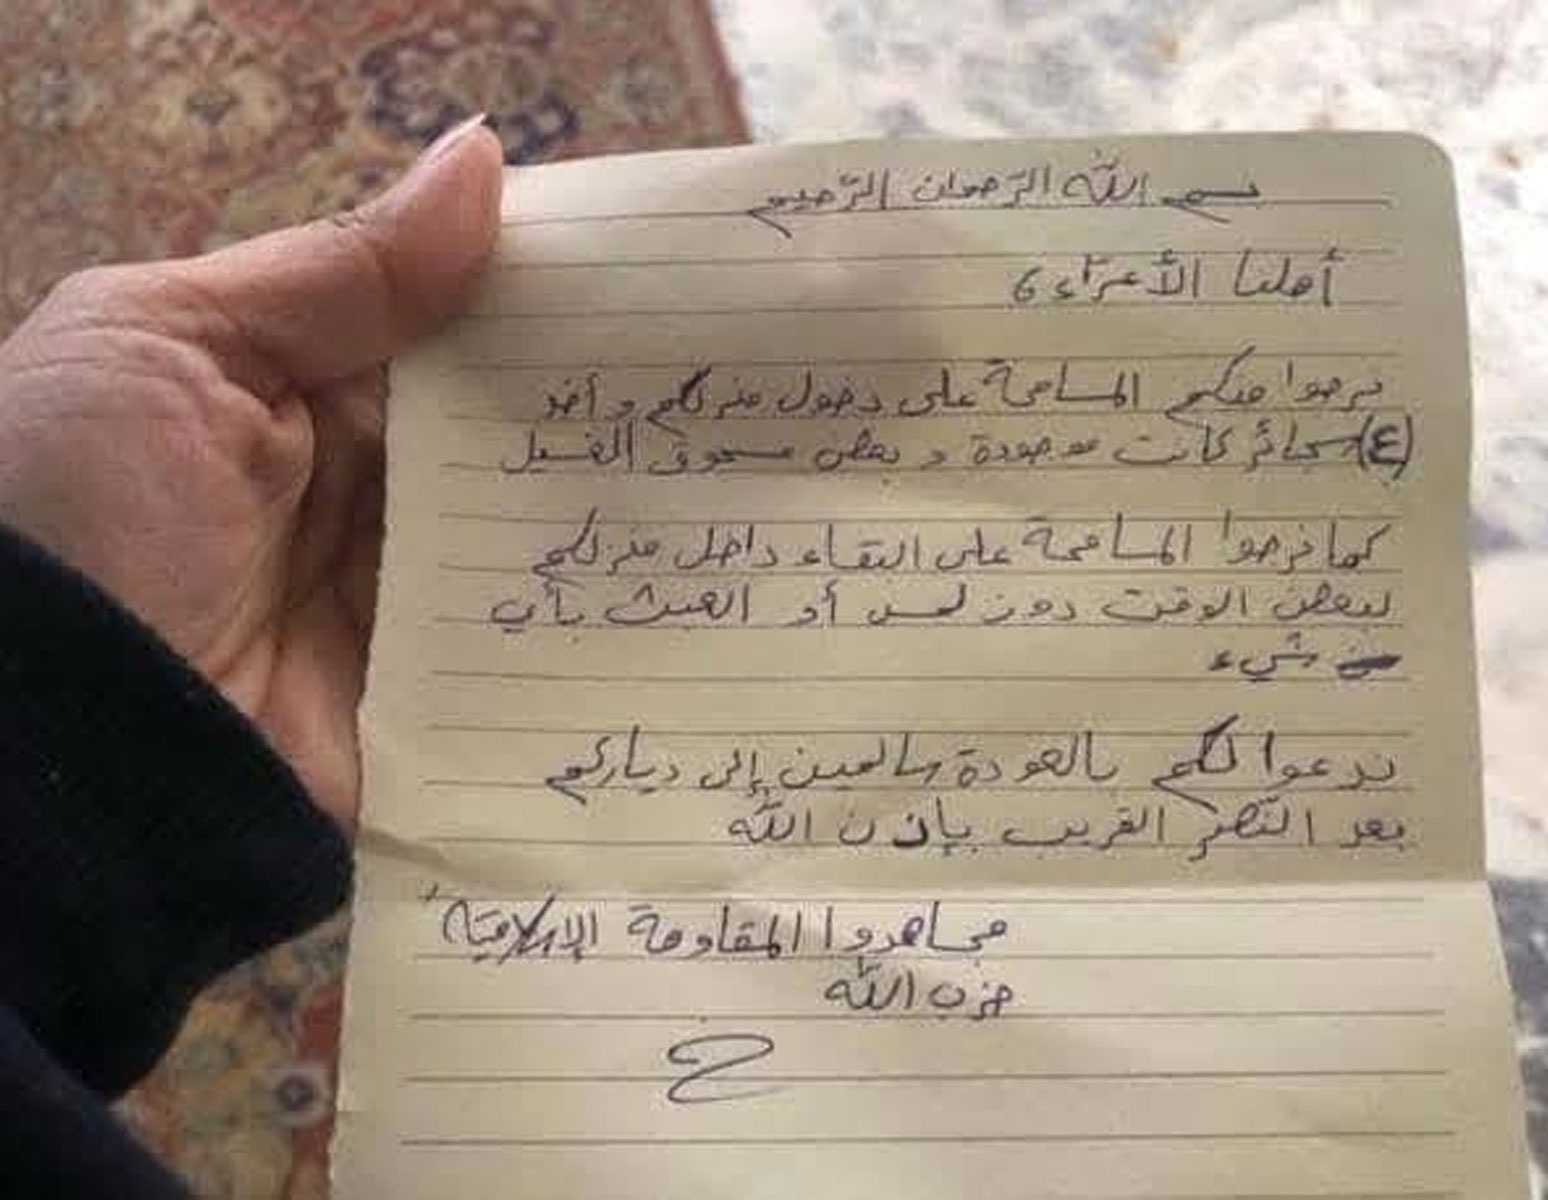 بسم الله الرّحمان الرّحيم
أهلنا الأعزّاء،
نرجوا منكم المسامحة على دخول منزلكم و أخذ
(٤) سجائر كانت موجودة و بعض مسحوق الغسيل
كما نرجوا المسامحة على البقاء داخل منزلكم
لبعض الوقت دون لمس أو العبث بأي
شيء
ندعوا لكم بالعودة سالمين إلى دياركم
بعد النّصر القريب بإذن الله
مجاهدوا المقاومة الإسلاميّة
حزب الله